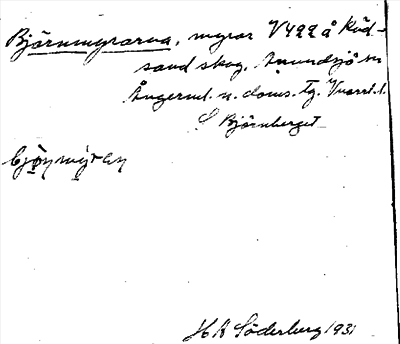 Björnmyrarna, myrar V422 å Röd-
sand skog, Anundsjö sn
Ångerml. n. doms. tg. Vnorrl. l.
S Björnberget
bjö̀ɳmýran
H A Söderberg 1931